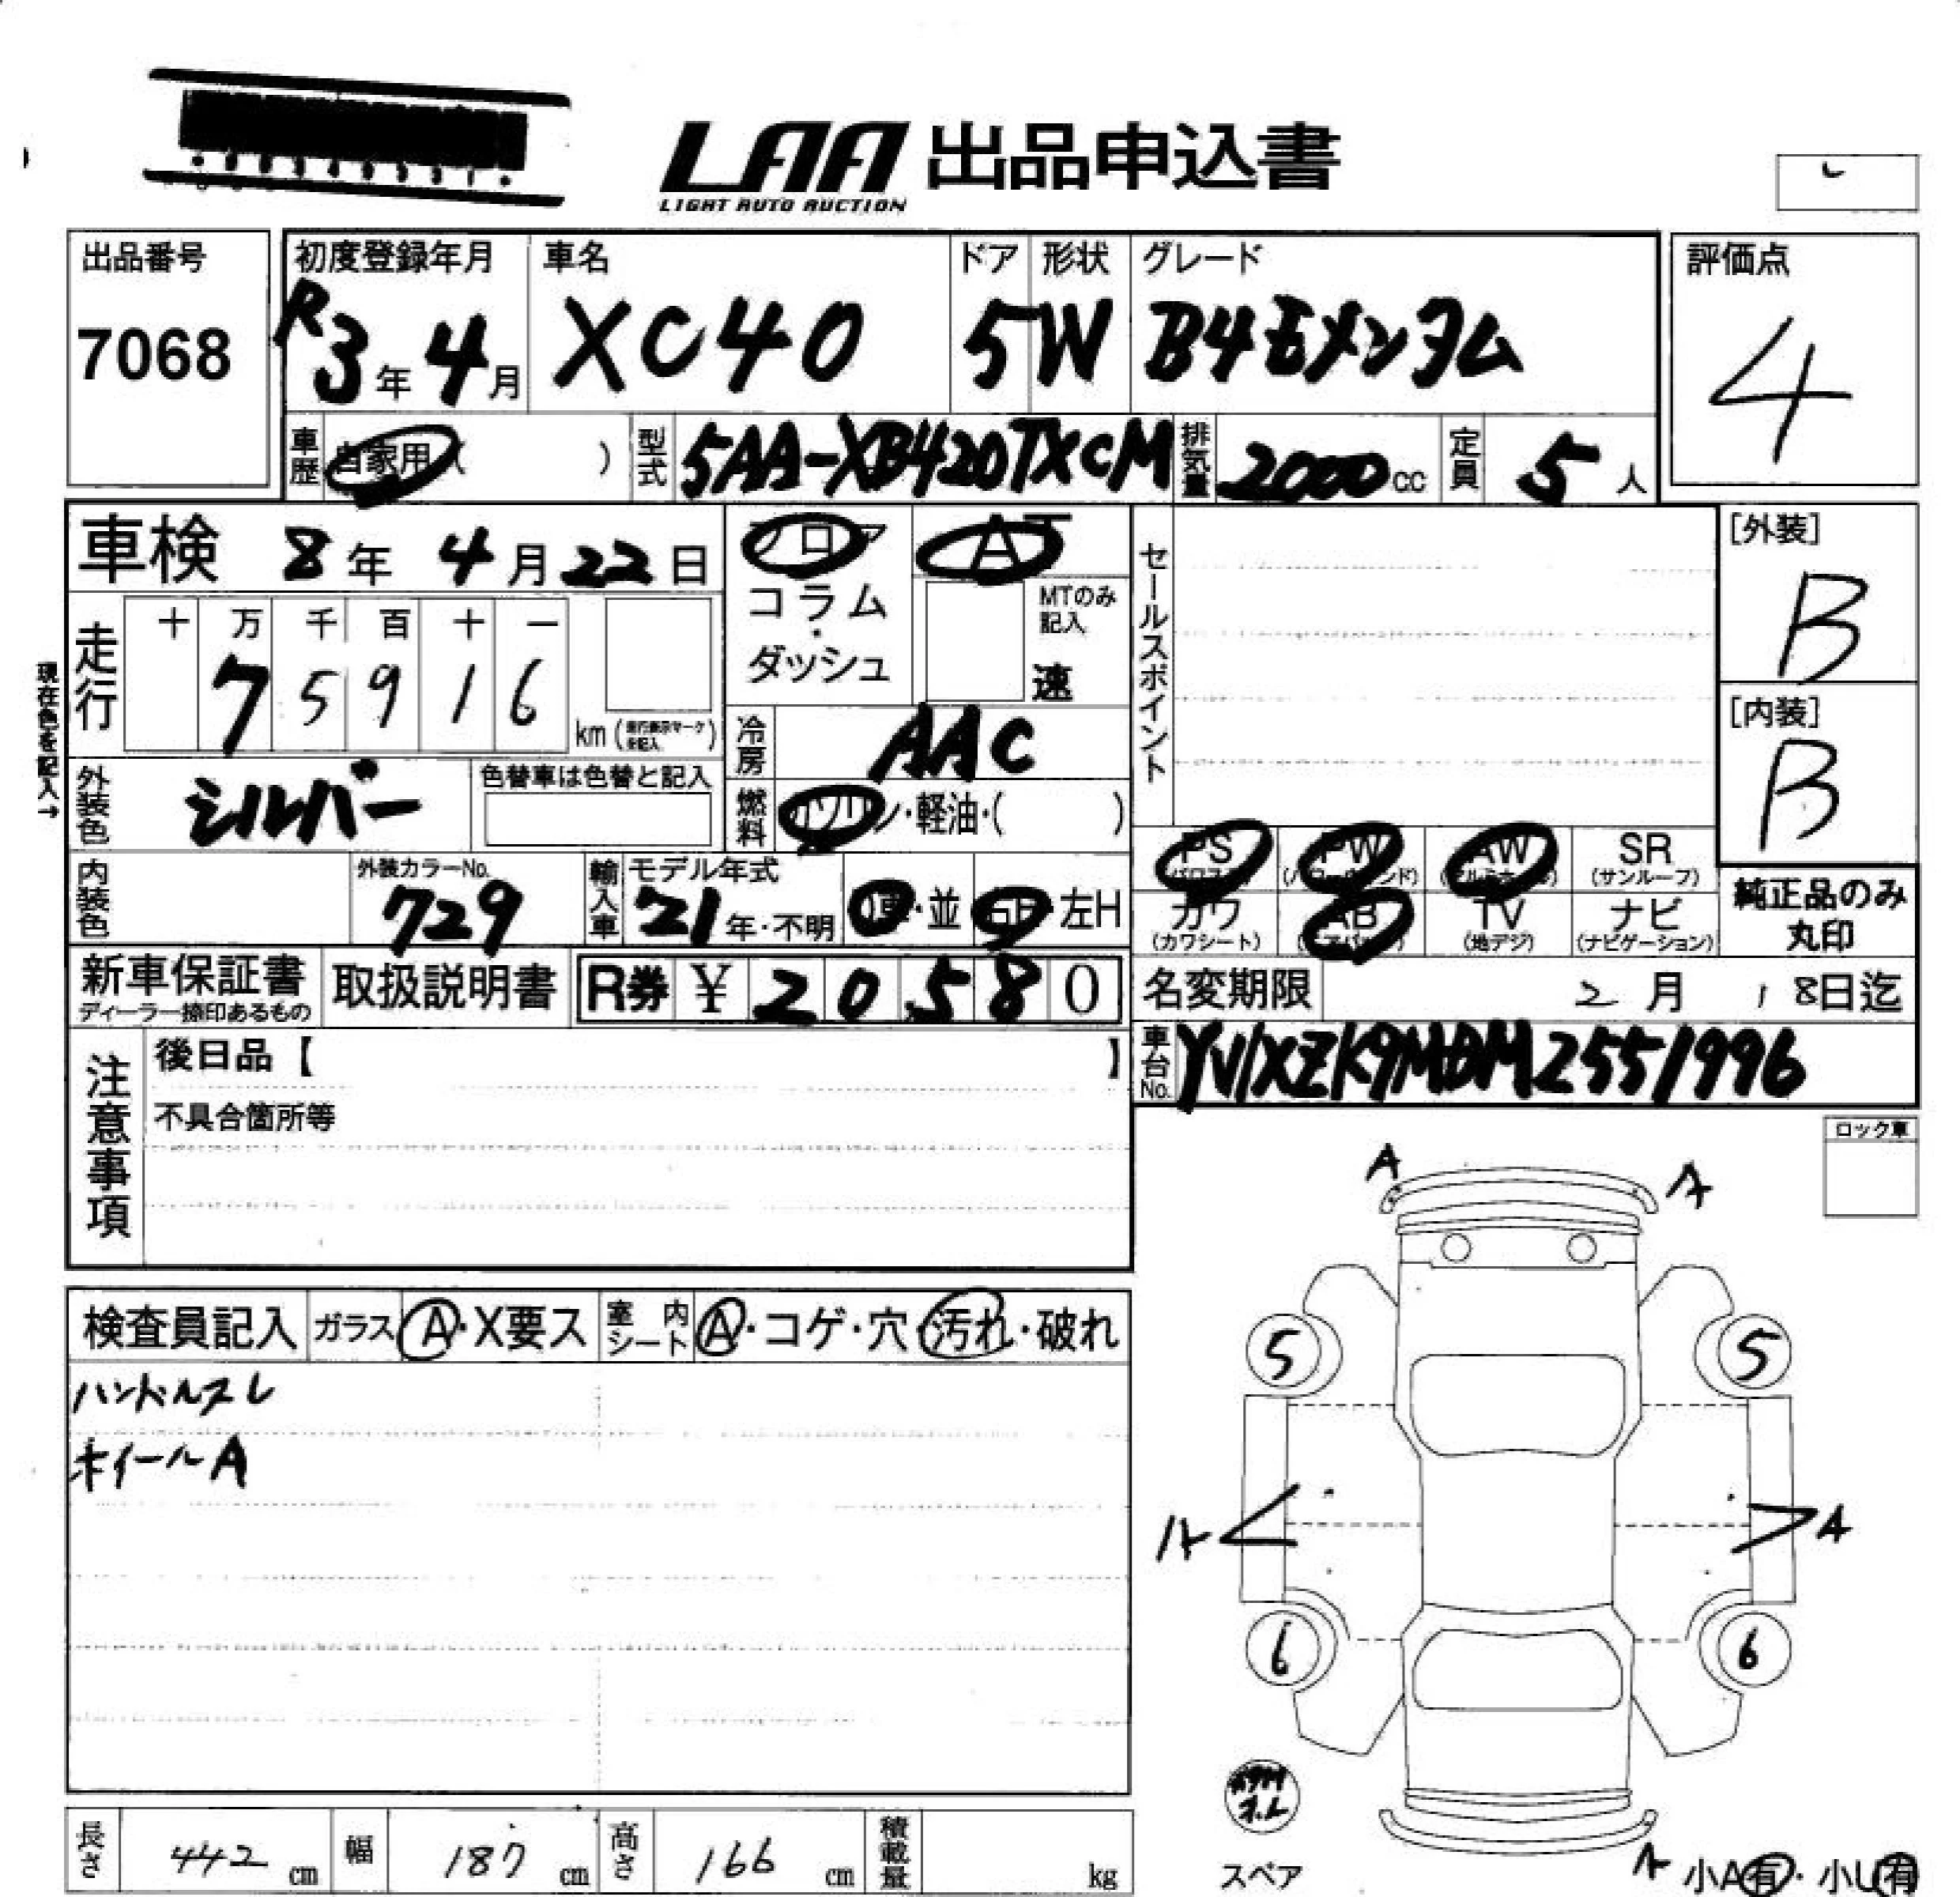 LAA 出品申込書
LIGHT AUTO AUCTION
出品番号
7068
初度登録年月
R3年4月
車名
XC40
ドア
5
形状
W
グレード
B4モメンタム
評価点
4
車歴 自家用 ( )
型式 5AA-XB420TXCM
排気量 2000cc
定員 5人
車検 8年 4月 22日
フロア
コラム
・
ダッシュ
AT
MTのみ
記入
速
セールスポイント
[外装]
B
[内装]
B
現在色を記入→
走行
十 万 千 百 十 一
7 5 9 1 6
km (走行表示マークを記入)
冷房 AAC
外装色 シルバー
色替車は色替と記入
燃料 ガソリン・軽油・( )
内装色
外装カラーNo.
729
輸入車
モデル年式
21年・不明
D車・並 右H・左H
PS PW AW SR
(パワステ) (パワーウィンド) (アルミホイール) (サンルーフ)
カワ AB TV ナビ
(カワシート) (エアバッグ) (地デジ) (ナビゲーション)
純正品のみ
丸印
新車保証書
ディーラー捺印あるもの
取扱説明書
R券 ¥ 20580
名変期限 2月 18日迄
車台No. YV1XZK9MDM2551996
注意事項
後日品【 】
不具合箇所等
ロック車
A A
検査員記入
ガラス A・X要ス
室内シート A・コゲ・穴・汚れ・破れ
ハンドルスレ
ホイールA
5 5
A A
6 6
長さ 442 cm
幅 187 cm
高さ 166 cm
積載量 kg
スペア
A
小A有・小U有